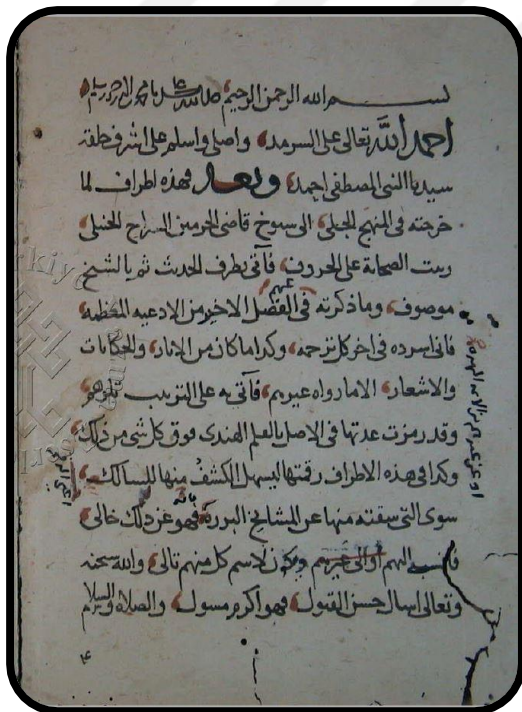 بسم الله الرحمن الرحيم صلى الله على سيدنا محمد وآله وسلم
احمد الله تعالى على السرمد واصلي واسلم على اشرف خلقه
سيدنا النبي المصطفى احمد وبعد فهذه اطراف لما
خرجته في المنهج الجلي الى شيوخ قاضي الحرمين السراج الحنبلي
رتبت الصحابة على الحروف فآتي بطرف الحديث ثم بالشيخ
موصوف وما ذكرته عنهم في الفصل الاخر من الادعيه المعظمه
فاني اسرده في اخر كل ترجمه وكذا ما كان من الاثار والحكايات
والاشعار الا ما رواه غيرهم فآتي به على الترتيب
وقد رمزت عدتها في الاصل بالقلم الهندي فوق كل شي من ذلك
وكذا في هذه الاطراف رقمتها ليسهل الكشف منها للسالك
سوى التي سقته منها عن المشايخ البرره فهو عن ذلك خالي
اليهم او الى غيرهم لاسم كل منهم تالي والله سبحنه
وتعالى اسال حسن القبول فهو اكرم مسول والصلاة والسلام